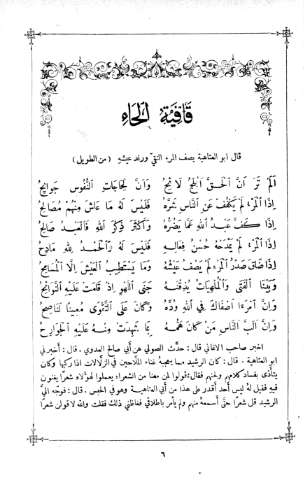 قافية الحاء
قال ابو العتاهية يصف المرء التقي ورغد عيشهِ (من الطويل)
أَلَمْ تَرَ أَنَّ الْحَقَّ أَبْلَجُ لَائِحُ وَأَنَّ لِحَاجَاتِ النُّفُوسِ جَوَائِحُ
إِذَا الْمَرْءُ لَمْ يَكْفُفْ عَنِ النَّاسِ شَرَّهُ فَلَيْسَ لَهُ مَا عَاشَ مِنْهُمْ مُصَالِحُ
إِذَا كَفَّ عَبْدُ اللهِ عَمَّا يَضُرُّهُ وَأَكْثَرَ ذِكْرَ اللهِ فَالْعَبْدُ صَالِحُ
إِذَا الْمَرْءُ لَمْ يَمْدَحْهُ حُسْنُ فِعَالِهِ فَلَيْسَ لَهُ وَالْحَمْدُ لِلهِ مَادِحُ
إِذَا ضَاقَ صَدْرُ الْمَرْءِ لَمْ يَصْفُ عَيْشُهُ وَمَا يَسْتَطِيبُ الْعَيْشَ إِلَّا الْمُسَامِحُ
وَبَيْنَا الْفَتَى وَالْمُلْهِيَاتُ يُذِقْنَهُ جَنَى اللَّهْوِ إِذْ قَامَتْ عَلَيْهِ النَّوَائِحُ
وَإِنَّ امْرَءًا أَصْفَاكَ فِي اللهِ وُدَّهُ وَكَانَ عَلَى التَّقْوَى مُعِينًا لَنَاصِحُ
وَإِنَّ أَلَبَّ النَّاسِ مَنْ كَانَ هَمُّهُ بِمَا شَهِدَتْ مِنْهُ عَلَيْهِ الْجَوَارِحُ
اخبر صاحب الاغاني قال : حدَّث الصولي عن أبي صالح العدوي . قال : أخبرني
ابو العتاهية . قال : كان الرشيد مما يعجبهُ غناء الملاحين في الزلالات اذا ركبها وكان
يتأذى بفساد كلامهم ولحنهم فقال : قولوا لمن معنا من الشعراء يعملوا لهؤلاء شعرًا يغنون
فيه فقيل لهُ ليس أحد أقدر على هذا من أبي العتاهية وهو في الحبس . قال : فوجّه اليَّ
الرشيد قل شعرًا حتى أسمعهُ منهم ولم يأمر باطلاقي فغاظني ذلك فقلت والله لا قولنَّ شعرًا
٦